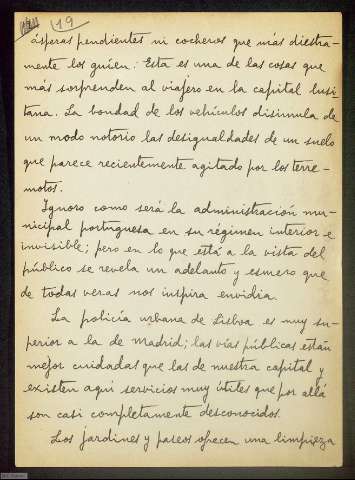 19
ásperas pendientes ni cocheros que más diestra-
mente los guíen. Esta es una de las cosas que
más sorprenden al viajero en la capital lusi-
tana. La bondad de los vehículos disimula de
un modo notorio las desigualdades de un suelo
que parece recientemente agitado por los terre-
motos.
Ignoro como será la administración mu-
nicipal portuguesa en su régimen interior e
invisible; pero en lo que está a la vista del
público se revela un adelanto y esmero que
de todas veras nos inspira envidia.
La policía urbana de Lisboa es muy su-
perior a la de Madrid; las vías públicas están
mejor cuidadas que las de nuestra capital y
existen aquí servicios muy útiles que por allá
son casi completamente desconocidos.
Los jardines y paseos ofrecen una limpieza